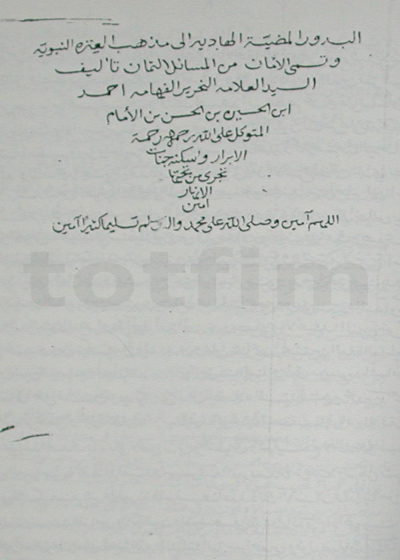 البدور المضيّة الهادية الى مذهب العترة النبويّه
وتسمى الاثمان من المسائل الثمان تأليف
السيد العلامه النحرير الفهامه احمد
ابن الحسين بن الحسن بن الأمام
المتوكل على الله رحمهم رحمة
الابرار واسكنه جنات
تجرى من تحتها
الانهار
آمين
اللهم آمين وصلى الله على محمد واله وسلم تسليما كثيرا آمين
totfim